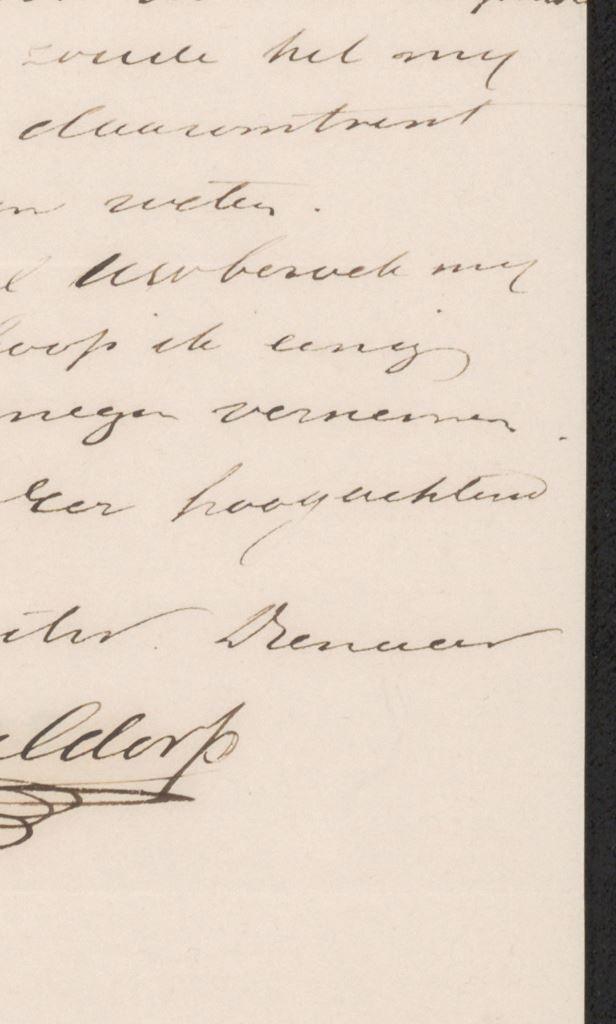 zoude het my
daaromtrent
en weten.
UW bezoek my
hoop ik eenig
mogen vernemen.
Zeer hoogachtend
Dienaar
eldorp